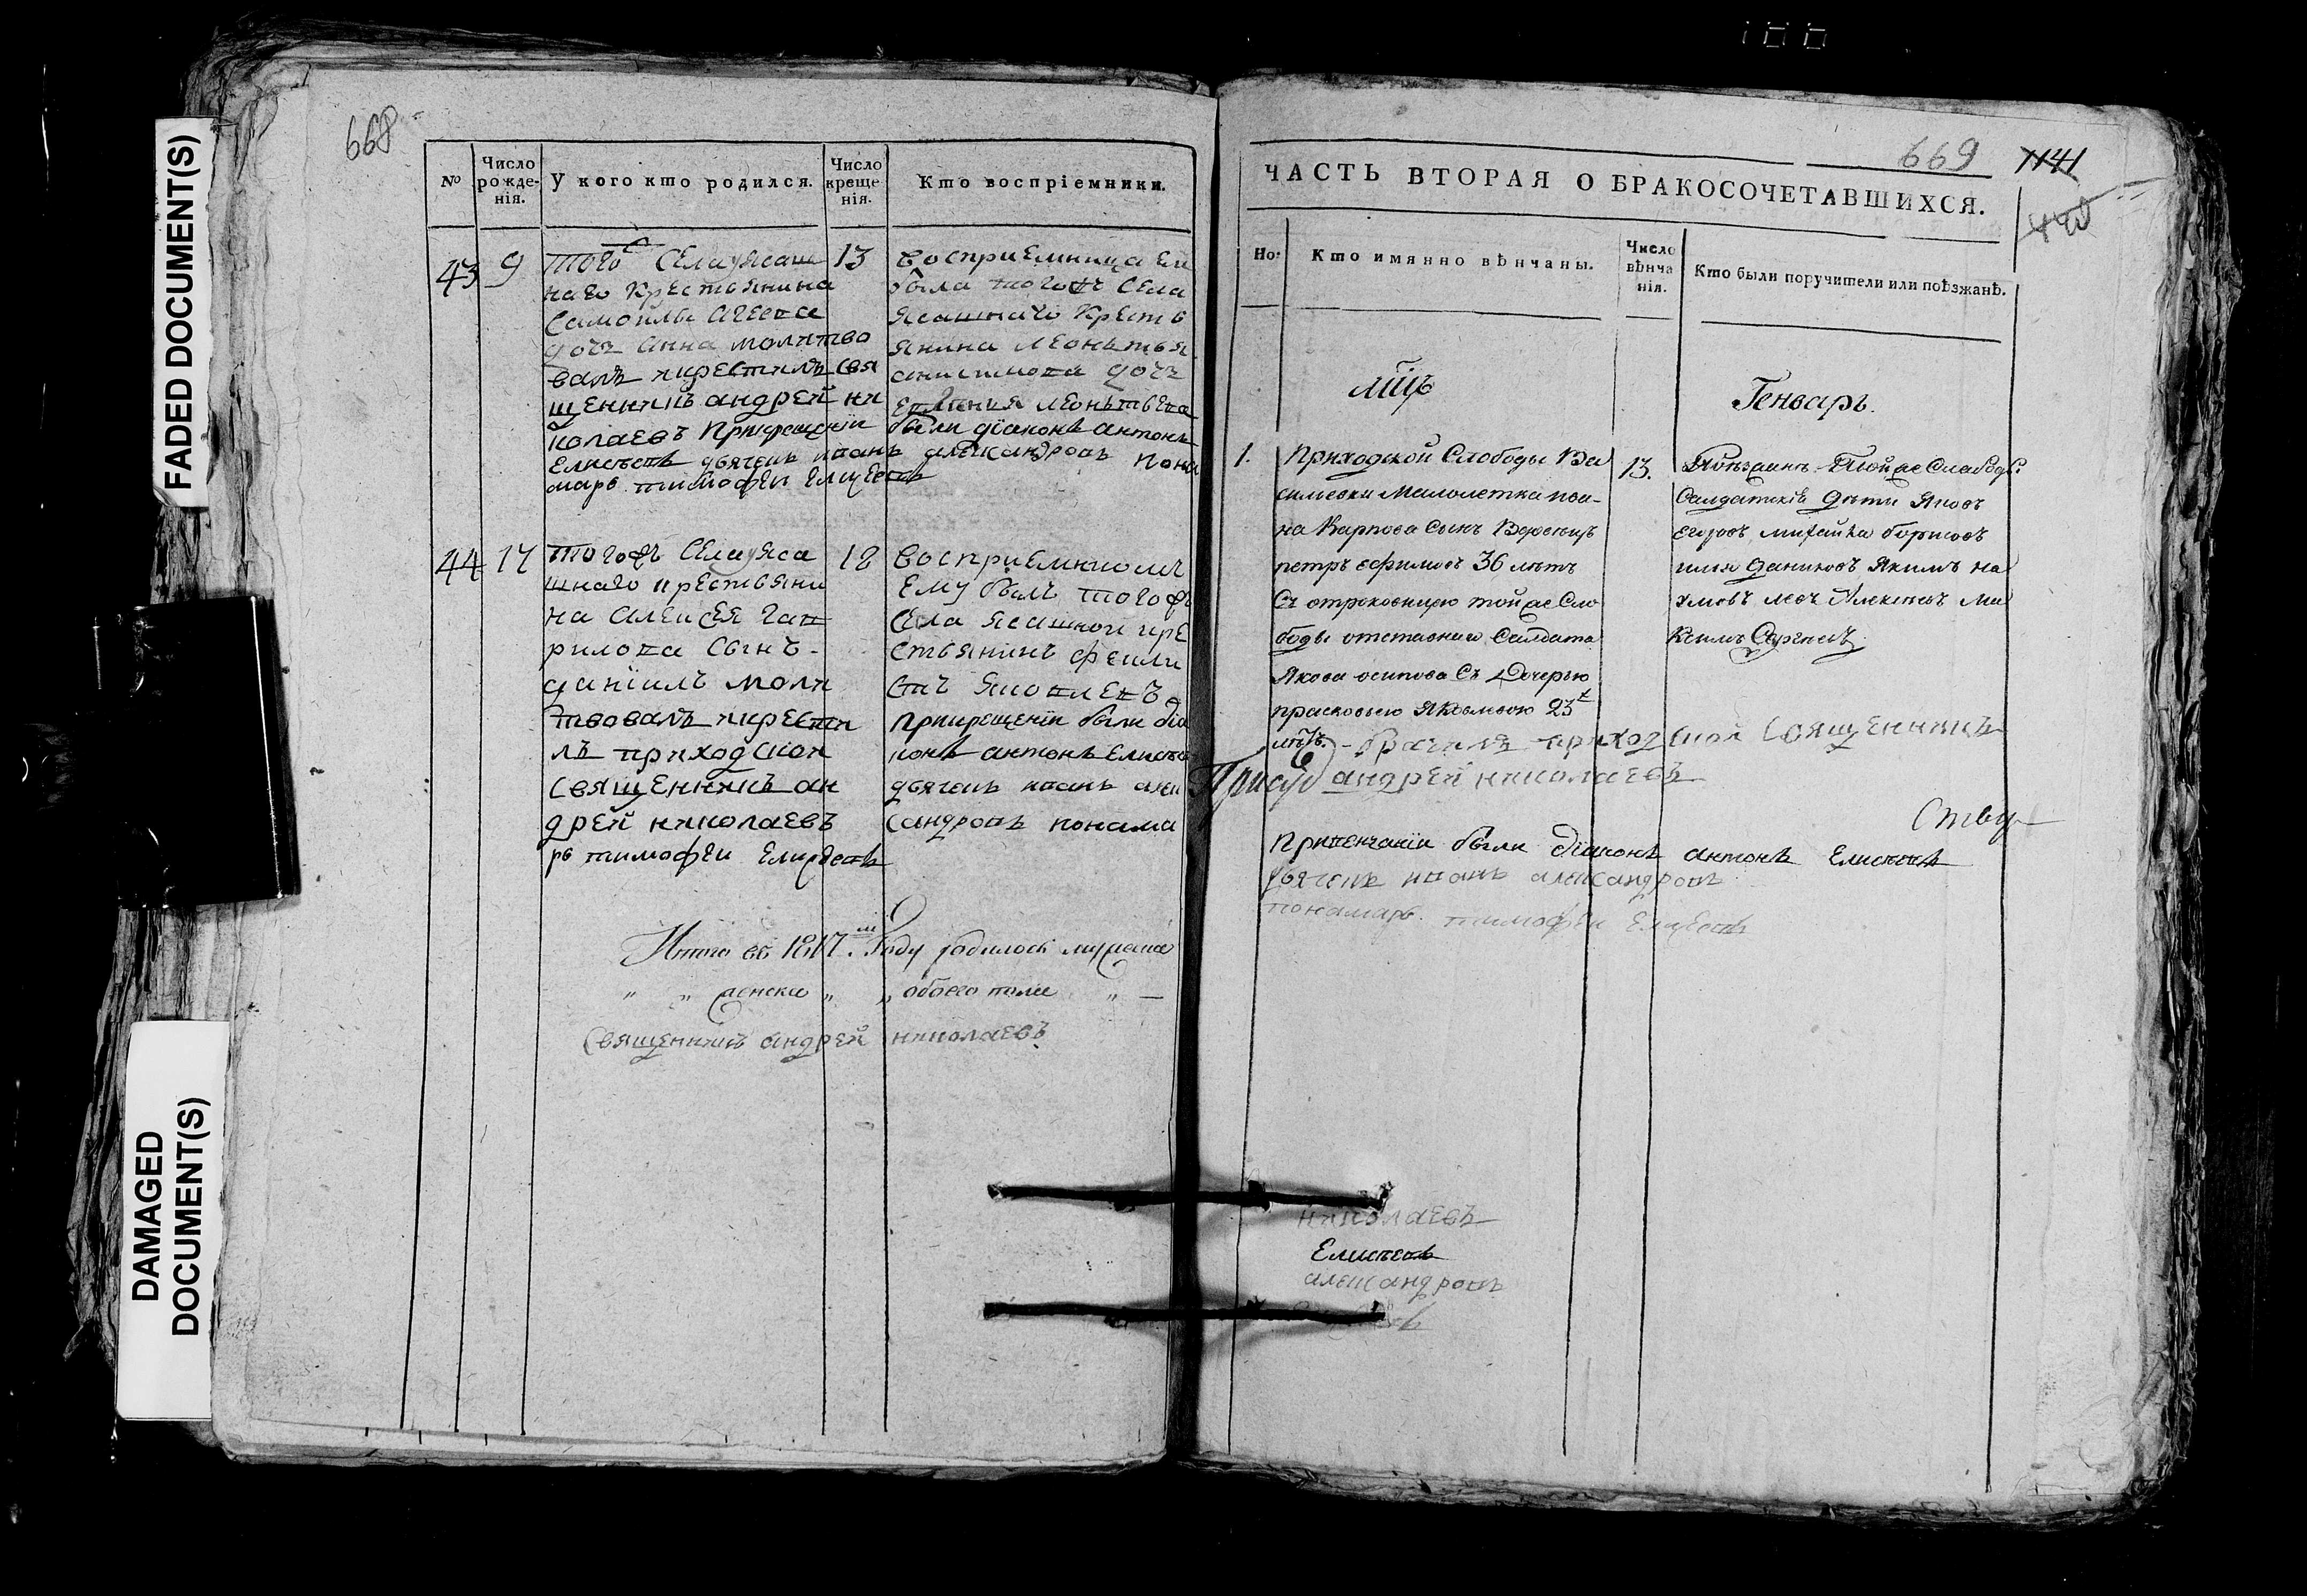 FADED DOCUMENT(S)
DAMAGED
DOCUMENT(S)
668
№
Число рожде-нія.
У кого кто родился.
Число креще нія.
Кто воспріемники.
43
9
того села ясаш
наго крестьянина
Самойлы Агеева
дочь анна молитво
валъ икрестилъ свя
щенникъ андрей ни
колаевъ Прикрещеніи
Елисѣевъ дьячекъ иванъ александровъ поно
марь тимофеи
13
восприемница ей
была тогожъ села
ясашнаго кресть
янина леонтья
анисимова дочь
леонтьева
были діаконъ антонъ
44
17
тогожъ села яса
шнаго крестьяни
на алексея гав
рилова сынъ
даніилъ моли
твовалъ икрести
лъ приходскои
священникъ ан
дрей николаевъ
рь тимофеи
18
восприемникомъ
ему былъ тогожъ
села ясашной кре
стьянинъ
прикрещеніи были діа
конъ антонъ Елисѣевъ
дьячекъ иванъ алек
сандровъ понама
Итого въ 1817.м Году родилось мужеска
" " женска " " обоего пола " —
Священникъ андрей николаевъ
669
1141
ЧАСТЬ ВТОРАЯ О БРАКОСОЧЕТАВШИХСЯ.
Но:
Кто имянно вѣнчаны.
Число вѣнча нія.
Кто были поручители или поѣзжанѣ.
мцъ
Генварь.
1.
Приходской Слободы Ва
силевки Малолетка ива-
на Карпова сынъ
петръ ефимовъ 36 лѣтъ
Съ отроковицею той же Сло
боды отставнаго Салдата
Якова осипова Съ Дочерью
прасковьею Яковлевою 23х
лѣтъ. - брачилъ приходской священникъ
андрей николаевъ
13.
той же Слабоды
Салдатскія дѣти Яковъ
егоровъ михайла борисовъ
илья даниловъ Якимъ на
умовъ левъ Алексѣевъ Ма
ксимъ Сергѣевъ
Ству
Привенчаніи были діаконъ антонъ Елисѣевъ
дьячекъ иванъ александровъ
понамарь тимофеи
николаевъ
Елисѣевъ
александровъ